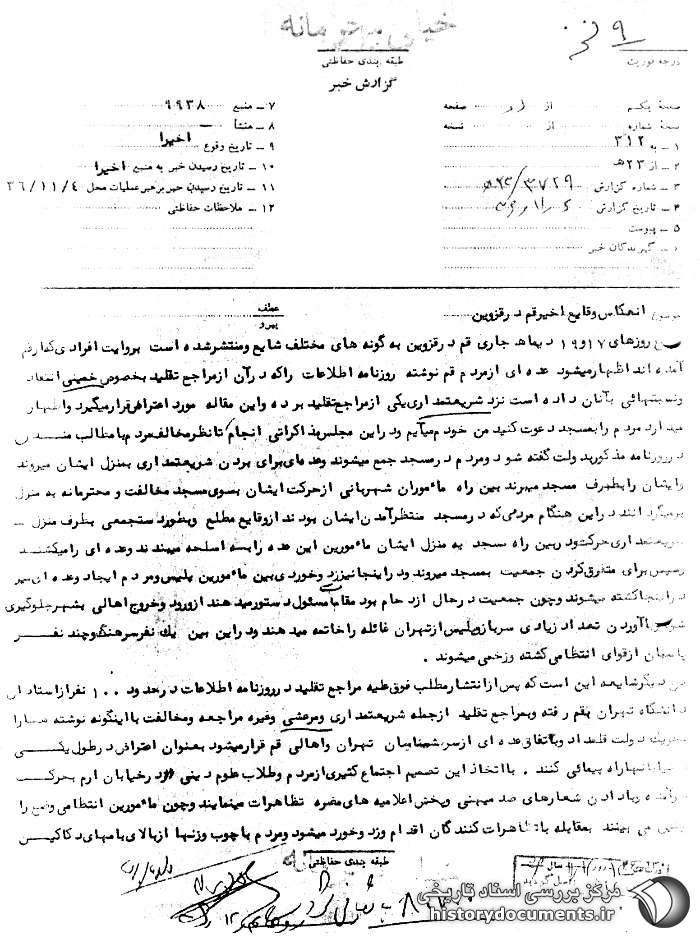 خیلی محرمانه
طبقه بندی حفاظتی
گزارش خبر
درجه فوریت
صفحه یکم از صفحه
نسخه شماره از نسخه
۱ – به ۳۱۲
۲ – از ۲۳ه
۳ – شماره گزارش
۴ – تاریخ گزارش
۵ – پیوست
گیرندگان خبر
۷ – منبع ۹۹۳۸
۸ – منشأ
۹ – تاریخ وقوع اخیرا
۱۰ – تاریخ رسیدن خبر به منبع اخیرا
۱۱ – تاریخ رسیدن خبر برهبر عملیات محل ۳۶/۱۱/۴
۱۲ – ملاحظات حفاظتی
موضوع انعکاس وقایع اخیر قم در قزوین
عطف
پیرو
روزهای ۱۷ و ۱۹ دیماه جاری قم در قزوین به گونه های مختلف شایع و منتشر شده است بروایت افرادی که از قم
آمده اند اظهار میشود عده ای از مردم قم نوشته روزنامه اطلاعات را که در آن از مراجع تقلید بخصوص خمینی انتقاد
ونسبتهائی بآنان داده است نزد شریعتمداری یکی از مراجع تقلید برده و این مقاله مورد اعتراض قرار میگیرد و اظهار
میدارد مردم را بمسجد دعوت کنید من خودم میآیم و در این مجلس مذاکراتی انجام تا نظر مخالف مردم با مطالب
در روزنامه مذکور بدولت گفته شود و مردم در مسجد جمع میشوند و عده ای برای بردن شریعتمداری بمنزل ایشان میروند
و ایشان را بطرف مسجد میبرند بین راه مأموران شهربانی از حرکت ایشان بسوی مسجد مخالفت و محترمانه به منزل
برمیگردانند در این هنگام مردمی که در مسجد منتظر آمدن ایشان بودند از وقایع مطلع و بطور دستجمعی بطرف منزل –
شریعتمداری حرکت و در بین راه مسجد به منزل ایشان مأمورین این عده را بسته اسلحه میبندند و عده ای را میکشند
سپس برای متفرق کردن جمعیت بمسجد میروند و در اینجا نیز زد و خوردی بین مأمورین پلیس و مردم ایجاد و عده ای نیز
در اینجا کشته میشوند و چون جمعیت در حال ازدحام بود مقامات مسئول دستور میدهند از ورود و خروج اهالی بشهر جلوگیری
با آوردن تعداد زیادی سرباز و پلیس از تهران غائله را خاتمه میدهند و در این بین یک نفر سرهنگ و چند نفر
پاسبان از قوای انتظامی کشته و زخمی میشوند .
دیگر شایعه این است که پس از انتشار مطلب فوق علیه مراجع تقلید در روزنامه اطلاعات در حدود ۱۰۰ نفر از استادان
دانشگاه تهران بقم رفته و بمراجع تقلید از جمله شریعتمداری و مرعشی وغیره مراجعه و مخالفت با اینگونه نوشته ها را
بتحریک دولت قلمداد و با اتفاق عده ای از سرشناسان تهران و اهالی قم قرار میشود بعنوان اعتراض در طول یکی
از خیابانها راه پیمائی کنند . با اتخاذ این تصمیم اجتماع کثیری از مردم و طلاب علوم دینی در خیابان ارم بحرکت
درآمده و با دادن شعارهای ضد میهنی و پخش اعلامیه های مضره تظاهرات مینمایند و چون مأمورین انتظامی وضع را
می بینند بمقابله با تظاهرات کنندگان اقدام و زد و خورد میشود و مردم با چوب و زنها از بالای بامهای دکاکین
طبقه بندی حفاظتی
مرکز بررسی اسناد تاریخی
historydocuments.ir